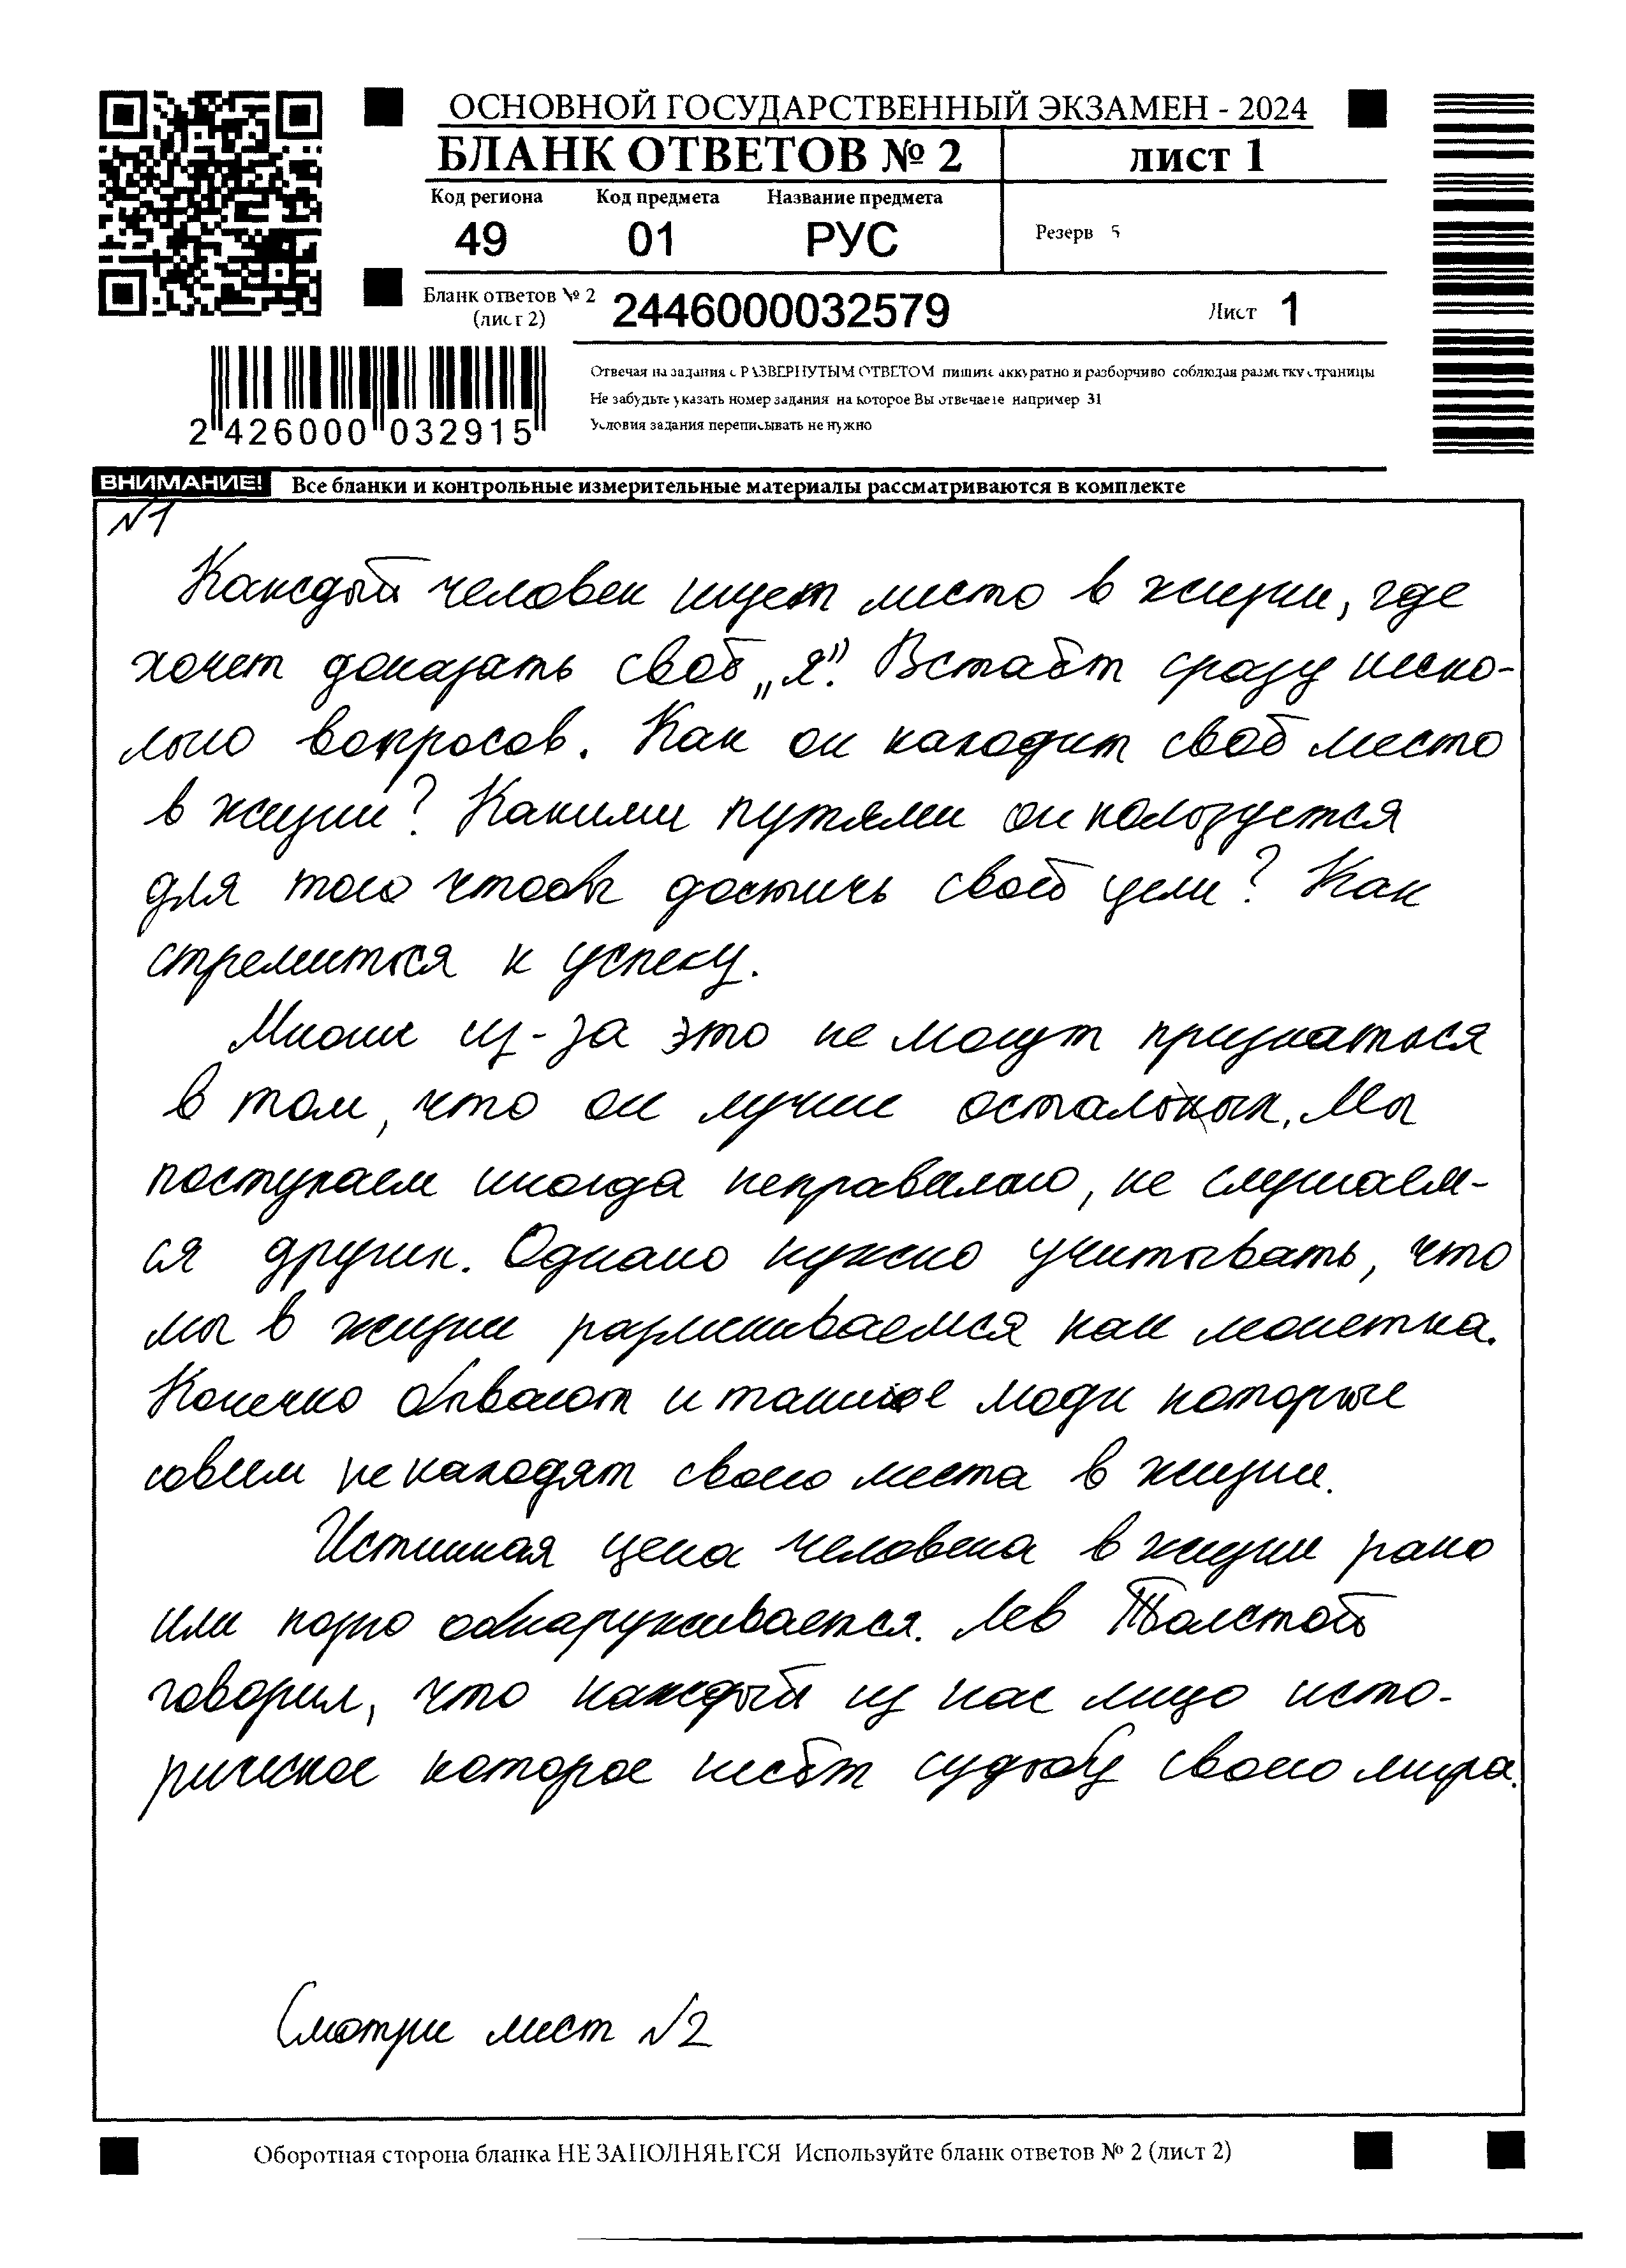 ОСНОВНОЙ ГОСУДАРСТВЕННЫЙ ЭКЗАМЕН - 2024
БЛАНК ОТВЕТОВ № 2
лист 1
Код региона Код предмета Название предмета
49 01 РУС
Резерв 5
Бланк ответов № 2
(лист 2)
2446000032579
Лист 1
2 426000 032915
Отвечая на задания с РАЗВЕРНУТЫМ ОТВЕТОМ пишите аккуратно и разборчиво соблюдая разметку страницы
Не забудьте указать номер задания на которое Вы отвечаете например 31
Условия задания переписывать не нужно
ВНИМАНИЕ! Все бланки и контрольные измерительные материалы рассматриваются в комплекте
№1
Каждый человек ищет место в жизни, где
хочет доказать своё „я”. Встаёт сразу неско-
лько вопросов. Как он находит своё место
в жизни? Какими путями он пользуется
для того чтобы достичь своей цели? Как
стремиться к успеху.
Многие из-за это не могут признаться
в том, что он лучше остальных. Мы
поступаем иногда неправильно, не слушаем-
ся других. Однако нужно учитывать, что
мы в жизни размениваемся как монетка.
Конечно бывают и такие люди которые
совсем не находят своего места в жизни.
Истинная цена человека в жизни рано
или поздно обнаруживается. Лев Толстой
говорил, что каждый из нас лицо исто-
рическое которое несёт судьбу своего мира.
Смотри лист №2
Оборотная сторона бланка НЕ ЗАПОЛНЯЕТСЯ Используйте бланк ответов № 2 (лист 2)